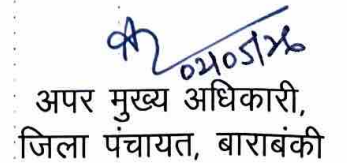 02/05/26
अपर मुख्य अधिकारी,
जिला पंचायत, बाराबंकी